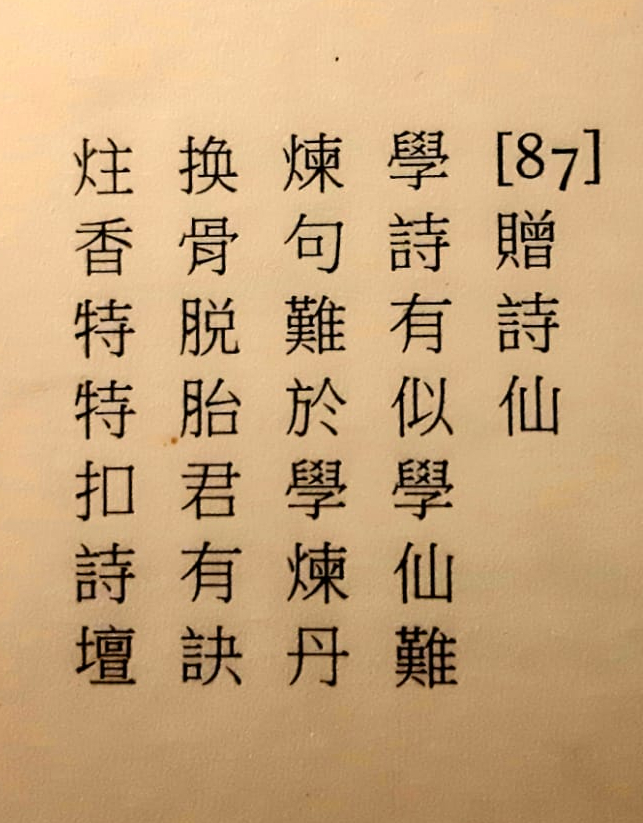 [87]贈詩仙
學詩有似學仙難
煉句難於學煉丹
换骨脱胎君有訣
炷香特特扣詩壇